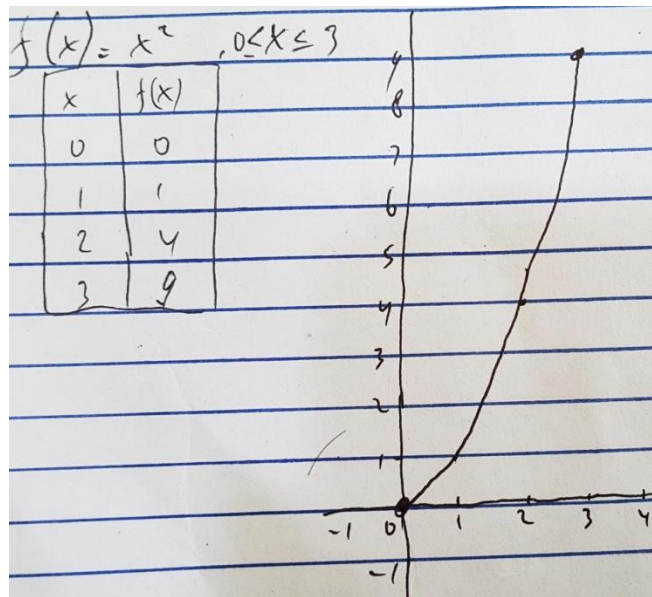 f(x) = x² , 0≤x≤3
x f(x)
0 0
1 1
2 4
3 9
9
8
7
6
5
4
3
2
1
-1 0 1 2 3 4
-1